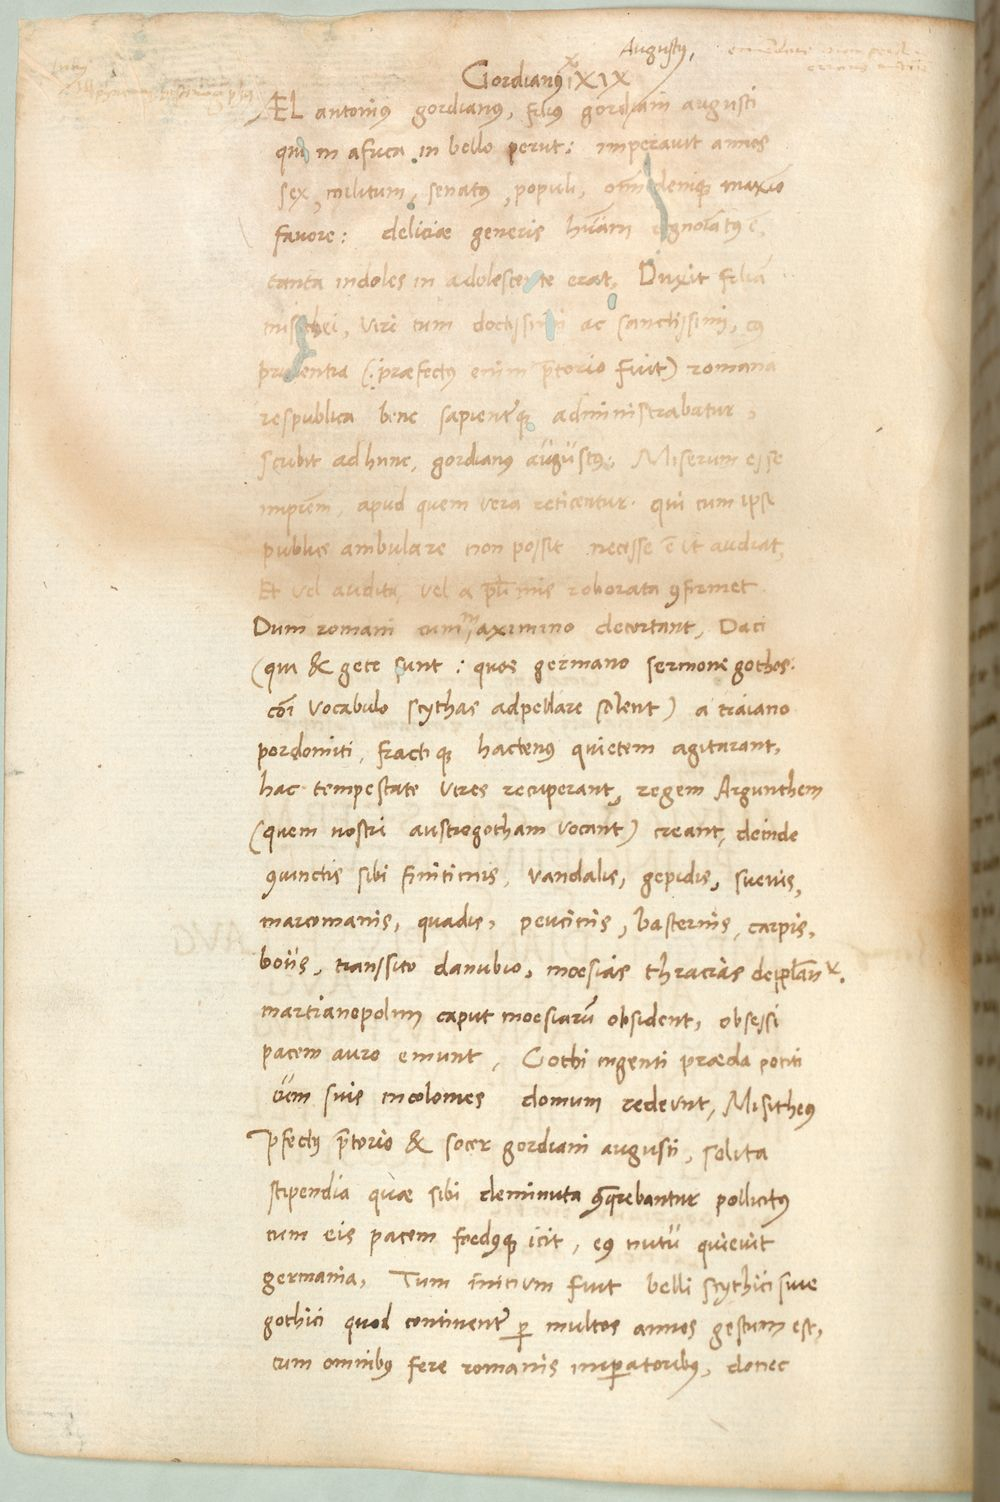 Augustus,
Gordianus XXIX
ÆL antonius gordianus, filius gordiani augusti
qui in africa in bello periit: imperauit annos
sex, militum, senatus, populi, omniũ deniq maxío
fauore: deliciæ generis hũani cognoĩatus ẽ,
tanta indoles in adolescente erat, Duxit filiã
misithei, viri tum doctissimi ac sanctissimi, cuius
prudentia (præfectus enim p̃torio fuit) romana
respublica bene sapienterq administrabatur,
scribit ad hunc, gordianus augustus: Miserum esse
imp̃rem, apud quem vera reticentur. qui cum ipse
publice ambulare non possit necesse ẽ ut audiat,
Et vel audita, vel a plũmis roborata ꝯfirmet
Dum romani cum maximino decertant, Daci
(qui & gete sunt : quos germano sermone gothos.
cõi vocabulo scythas adpellare solent) a traiano
perdomiti, fractiq hactenus quietem agitarant,
hac tempestate vires recuperant, regem Argunthem
(quem nostri austrogotham vocant) creant, deinde
ꝯiunctis sibi finitimis, vandalis, gepidis, sueuis,
marcomanis, quadis, peucinis, basternis, carpis,
boiis, transito danubio, moesias thracias
martianopolim caput moesiarũ obsident, obsessi
pacem auro emunt, Gothi ingenti præda potiti
cũ suis incolomes domum redeunt, Misitheus
p̃fectus p̃torio & socer gordiani augusti, solita
stipendia quæ sibi deminuta ꝯquerebantur pollicitus
cum eis pacem foedusq icit, eius nutu quieuit
germania, Tum initium fuit belli scythici siue
gothici quod continenter per multos annos gestum est,
cum omnibus fere romanis imperatoribus, donec